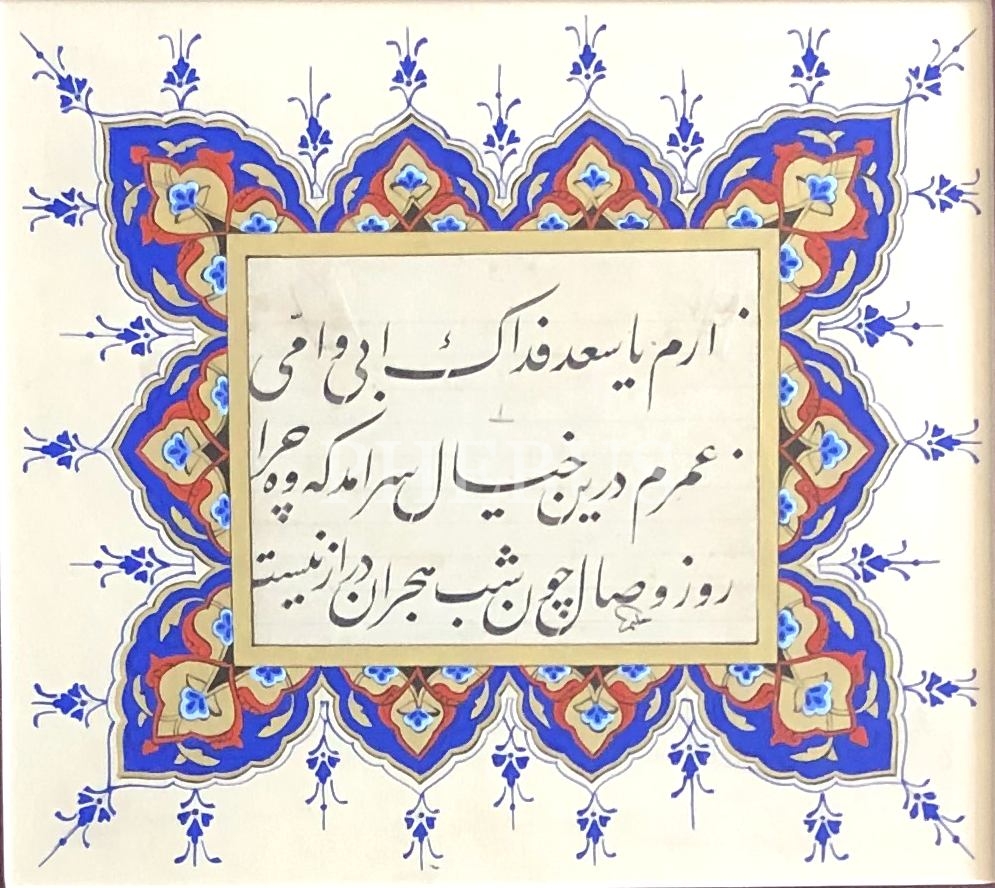 ارم یا سعد فداک ابی و امّی
عمرم درین خیال سرامد که وه چرا
روز وصال چون شب هجران دراز نیست